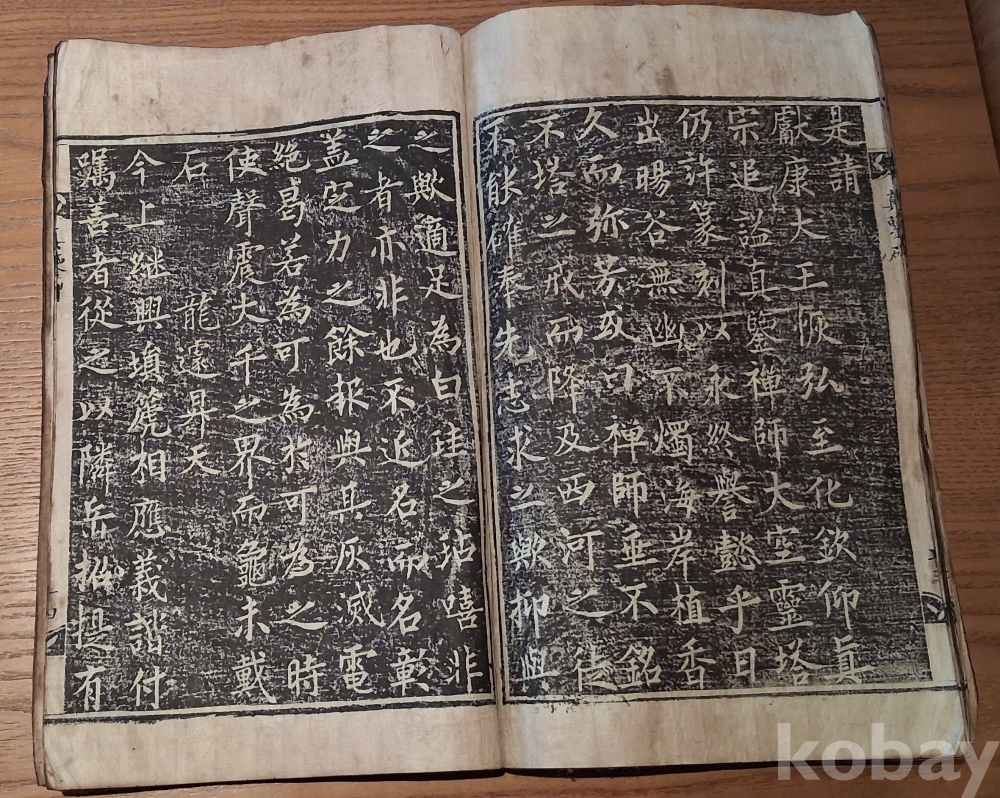 是請
獻康大王恢弘至化欽仰真
宗追諡真鑒禪師大空靈塔
仍許篆刻以永終譽懿乎日
出暘谷無幽不燭海岸植香
久而弥芳或曰禪師垂不銘
不塔之戒而降及西河之徒
不能確奉先志求之歟抑與
之歟適足為白珪之玷嘻非
之者亦非也不近名而名彰
盖定力之餘報與其灰滅電
絶曷若為可為於可為之時
使聲震大千之界而龜未載
石龍遽昇天
今上継興塤篪相應義諧付
囑善者從之以隣岳招提有
kobay